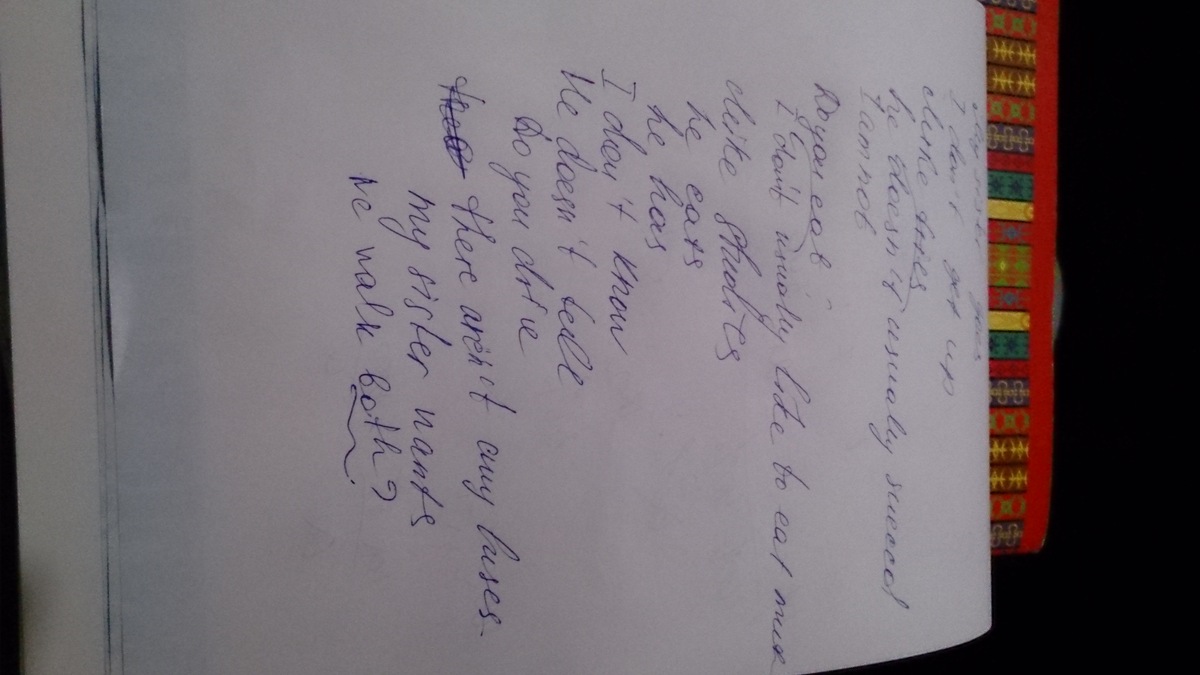 I don't get up
Mike tries
he doesn't usually succed
I am not
Do you eat
I don't usually like to eat much
Mike studies
he eats
he has
I don't know
He doesn't tell
Do you drive
there aren't any buses.
my sister wants
we walk both?